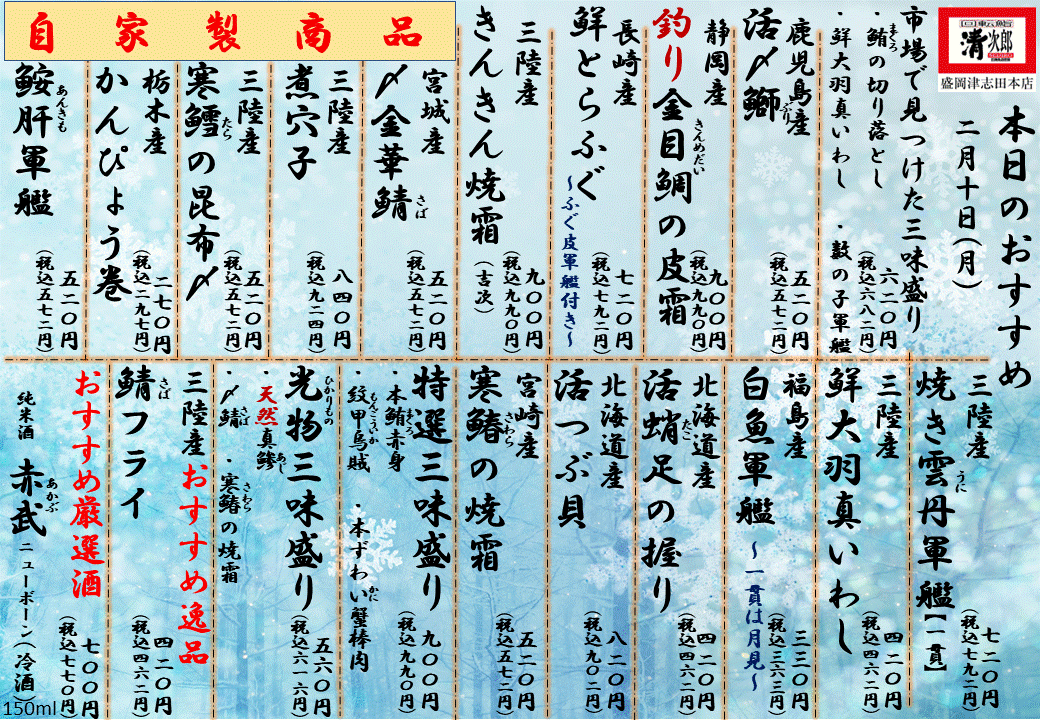 回転鮨
清次郎
盛岡津志田本店
本日のおすすめ
二月十日(月)
市場で見つけた三味盛り
・鮪の切り落とし
まぐろ
・鮮大羽真いわし
・数の子軍艦
六二〇円
(税込六八二円)
鹿児島産
活〆鰤
ぶり
五二〇円
(税込五七二円)
静岡産
釣り金目鯛の皮霜
きんめだい
九〇〇円
(税込九九〇円)
長崎産
鮮とらふぐ
~ふぐ皮軍艦付き~
七二〇円
(税込七九二円)
三陸産
きんきん焼霜
(吉次)
九〇〇円
(税込九九〇円)
自家製商品
宮城産
〆金華鯖
さば
五二〇円
(税込五七二円)
三陸産
煮穴子
八四〇円
(税込九二四円)
三陸産
寒鱈の昆布〆
たら
五二〇円
(税込五七二円)
栃木産
かんぴょう巻
二七〇円
(税込二九七円)
鮟肝軍艦
あんきも
五二〇円
(税込五七二円)
三陸産
焼き雲丹軍艦【一貫】
うに
七二〇円
(税込七九二円)
三陸産
鮮大羽真いわし
四二〇円
(税込四六二円)
福島産
白魚軍艦
~一貫は月見~
三三〇円
(税込三六三円)
北海道産
活蛸足の握り
たこ
四二〇円
(税込四六二円)
北海道産
活つぶ貝
八二〇円
(税込九〇二円)
宮崎産
寒鰆の焼霜
さわら
五二〇円
(税込五七二円)
特選三味盛り
・本鮪赤身
まぐろ
・紋甲烏賊
もんこういか
・本ずわい蟹棒肉
かに
九〇〇円
(税込九九〇円)
光物三味盛り
ひかりもの
・天然真鰺
あじ
・〆鯖
さば
・寒鰆の焼霜
さわら
五六〇円
(税込六一六円)
おすすめ逸品
三陸産
鯖フライ
さば
四二〇円
(税込四六二円)
おすすめ厳選酒
純米酒
赤武
あかぶ
ニューボーン(冷酒)
七〇〇円
(税込七七〇円)
150ml